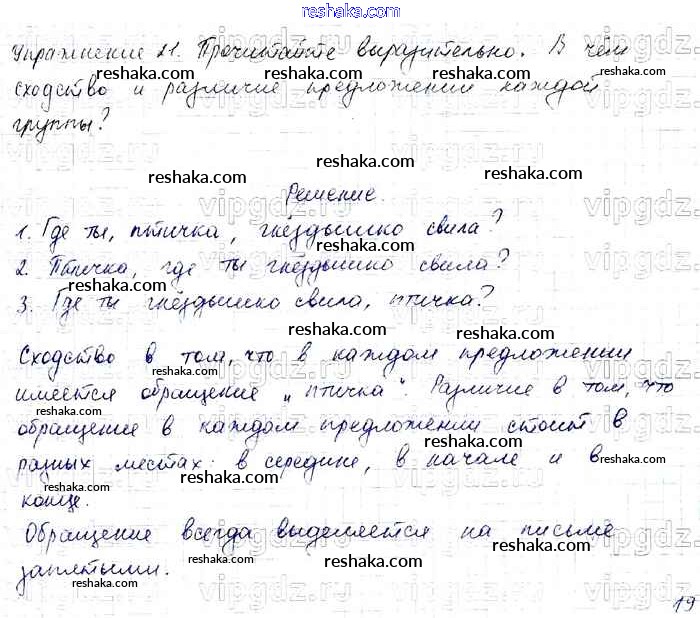 reshaka.com
Упражнение 21. Прочитайте выразительно. В чём
сходство и различие предложений каждой
группы?
Решение.
1. Где ты, птичка, гнёздышко свила?
2. Птичка, где ты гнёздышко свила?
3. Где ты гнёздышко свила, птичка?
Сходство в том, что в каждом предложении
имеется обращение „птичка“. Различие в том, что
обращение в каждом предложении стоит в
разных местах: в середине, в начале и в
конце.
Обращение всегда выделяется на письме
запятыми.
19